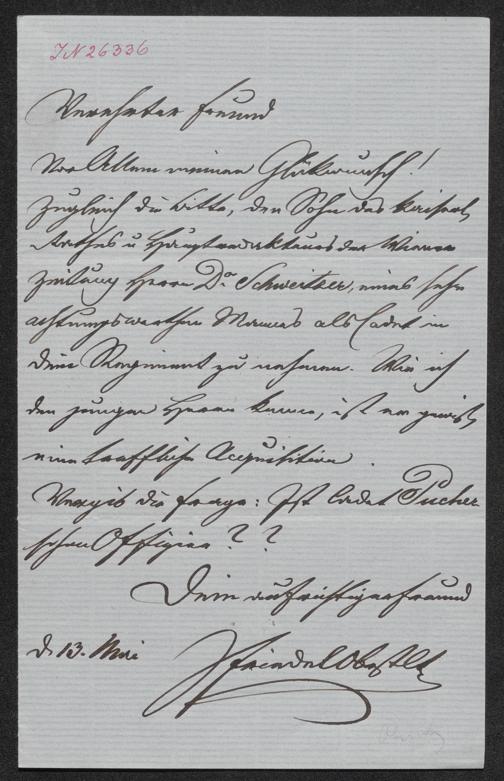 IN 26336
Verehrter Freund
Vor Allem meinen Glükwunsch!
Zugleich die bitte, den Sohn des kaiserl.
Rathes u Hauptredakteurs der Wiener
Zeitung Herrn Dr. Schweitzer, eines sehr
achtungswerthen Mannes als Cadet in
Dein Regiment zu nehmen. Wie ich
den jungen Herrn kenne, ist er gewiß
eine treffliche Acquisition.
Vergib die Frage: Ist Cadet Pucher
schon Offizier??
Dein aufrichtiger Freund
d. 13. Mai
Friedel Obstlt